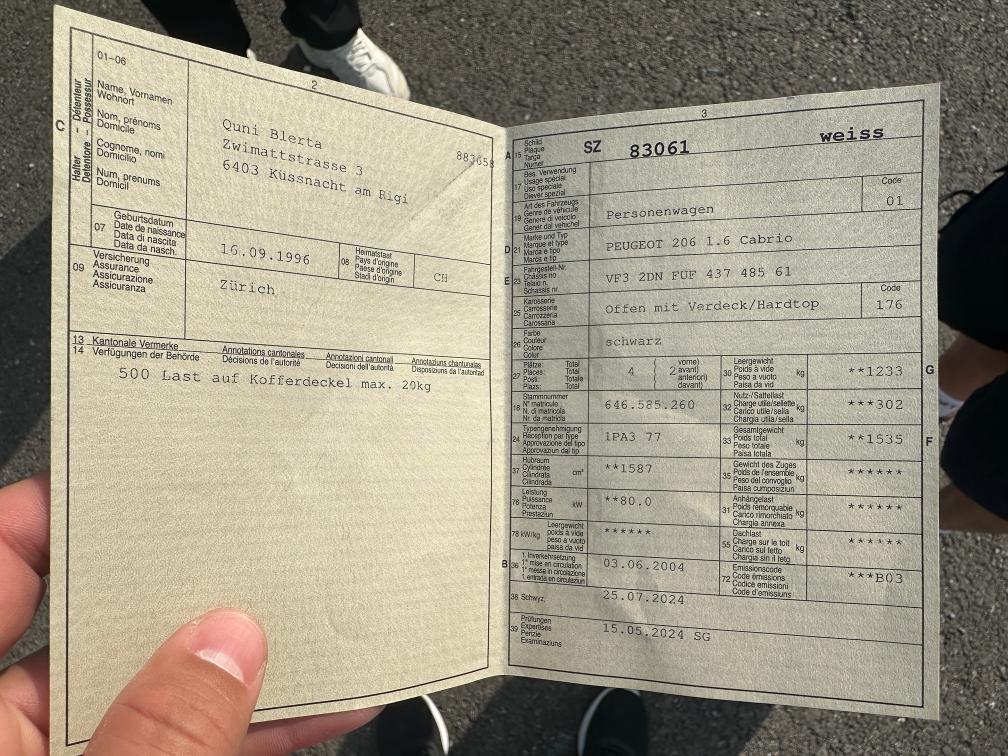 2
01-06
Name, Vornamen
Wohnort
Nom, prénoms
Domicile
Cognome, nomi
Domicilio
Num, prenums
Domicil
C
Halter - Détenteur
Detentore - Possessur
Quni Blerta
Zwimattstrasse 3
6403 Küssnacht am Rigi
883658
07
Geburtsdatum
Date de naissance
Data di nascita
Data da nasch.
16.09.1996
08
Heimatstaat
Pays d'origine
Paese d'origine
Stadi d'origin
CH
09
Versicherung
Assurance
Assicurazione
Assicuranza
Zürich
13 Kantonale Vermerke Annotations cantonales Annotazioni cantonali Annotaziuns chantunalas
14 Verfügungen der Behörde Décisions de l'autorité Decisioni dell'autorità Disposiziuns da l'autoritad
500 Last auf Kofferdeckel max. 20kg
3
A 15
Schild
Plaque
Targa
Numer
SZ 83061 weiss
17
Bes. Verwendung
Usage spécial
Uso speciale
Diever spezial
19
Art des Fahrzeugs
Genre de véhicule
Genere di veicolo
Gener dal vehichel
Personenwagen
Code
01
D 21
Marke und Typ
Marque et type
Marca e tipo
Marca e tip
PEUGEOT 206 1.6 Cabrio
E 23
Fahrgestell-Nr.
Châssis no
Telaio n.
Schassis nr.
VF3 2DN FUF 437 485 61
25
Karosserie
Carrosserie
Carrozzeria
Carossaria
Offen mit Verdeck/Hardtop
Code
176
26
Farbe
Couleur
Colore
Colur
schwarz
27
Plätze: Total
Places: Total
Posti: Totale
Plazs: Total
4 ( 2 vorne)
avant)
anteriori)
davant)
30
Leergewicht
Poids à vide
Peso a vuoto
Paisa da vid
kg
**1233
G
18
Stammnummer
N° matricule
N. di matricola
Nr. da matricla
646.585.260
32
Nutz-/Sattellast
Charge utile/sellette
Carico utile/sella
Chargia utila/sella
kg
***302
24
Typengenehmigung
Réception par type
Approvazione del tipo
Approvaziun dal tip
1PA3 77
33
Gesamtgewicht
Poids total
Peso totale
Paisa totala
kg
**1535
F
37
Hubraum
Cylindrée
Cilindrata
Cilindrada
cm³
**1587
35
Gewicht des Zuges
Poids de l'ensemble
Peso del convoglio
Paisa cumposiziun
kg
******
76
Leistung
Puissance
Potenza
Prestaziun
kW
**80.0
31
Anhängelast
Poids remorquable
Carico rimorchiato
Chargia annexa
kg
******
78 kW/kg
Leergewicht
poids à vide
peso a vuoto
paisa da vid
******
55
Dachlast
Charge sur le toit
Carico sul tetto
Chargia sin il tetg
kg
******
B 36
1. Inverkehrsetzung
1re mise en circulation
1a messa in circolazione
1. entrada en circulaziun
03.06.2004
72
Emissionscode
Code émissions
Codice emissioni
Code d'emissiuns
***B03
38 Schwyz,
25.07.2024
39
Prüfungen
Expertises
Perizie
Examinaziuns
15.05.2024 SG